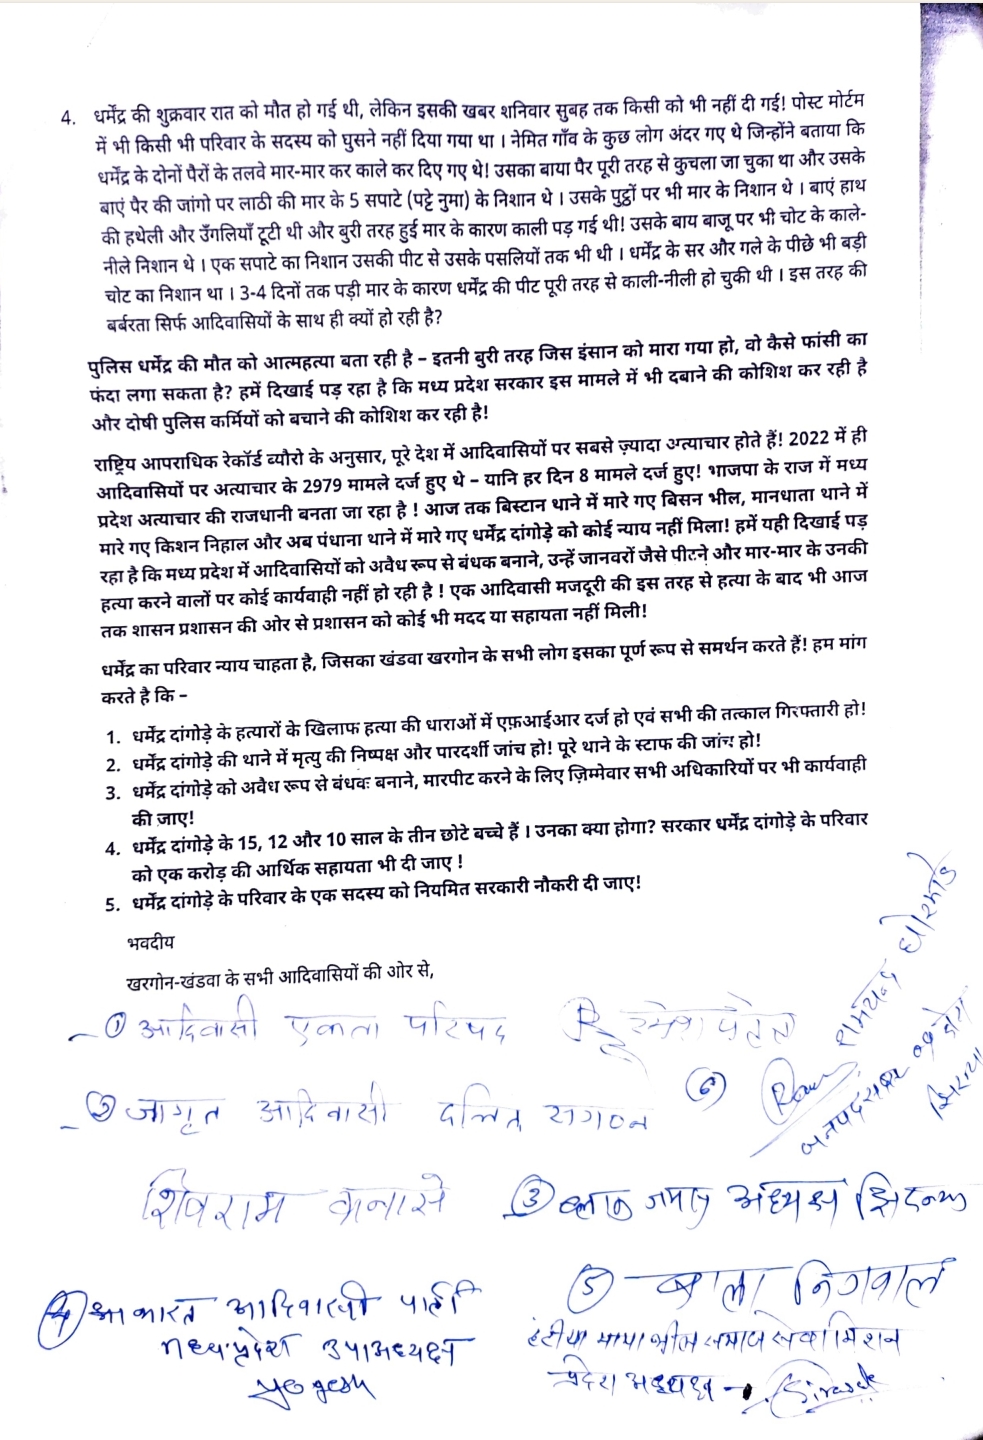 4. धर्मेंद्र की शुक्रवार रात को मौत हो गई थी, लेकिन इसकी खबर शनिवार सुबह तक किसी को भी नहीं दी गई! पोस्ट मोर्टम
में भी किसी भी परिवार के सदस्य को घुसने नहीं दिया गया था । नेमित गाँव के कुछ लोग अंदर गए थे जिन्होंने बताया कि
धर्मेंद्र के दोनों पैरों के तलवे मार-मार कर काले कर दिए गए थे! उसका बाया पैर पूरी तरह से कुचला जा चुका था और उसके
बाएं पैर की जांगो पर लाठी की मार के 5 सपाटे (पट्टे नुमा) के निशान थे । उसके पुट्ठों पर भी मार के निशान थे । बाएं हाथ
की हथेली और उँगलियाँ टूटी थी और बुरी तरह हुई मार के कारण काली पड़ गई थी! उसके बाय बाजू पर भी चोट के काले-
नीले निशान थे । एक सपाटे का निशान उसकी पीट से उसके पसलियों तक भी थी । धर्मेंद्र के सर और गले के पीछे भी बड़ी
चोट का निशान था । 3-4 दिनों तक पड़ी मार के कारण धर्मेंद्र की पीट पूरी तरह से काली-नीली हो चुकी थी । इस तरह की
बर्बरता सिर्फ आदिवासियों के साथ ही क्यों हो रही है?
पुलिस धर्मेंद्र की मौत को आत्महत्या बता रही है – इतनी बुरी तरह जिस इंसान को मारा गया हो, वो कैसे फांसी का
फंदा लगा सकता है? हमें दिखाई पड़ रहा है कि मध्य प्रदेश सरकार इस मामले में भी दबाने की कोशिश कर रही है
और दोषी पुलिस कर्मियों को बचाने की कोशिश कर रही है!
राष्ट्रिय आपराधिक रेकॉर्ड ब्यौरो के अनुसार, पूरे देश में आदिवासियों पर सबसे ज़्यादा अत्याचार होते हैं! 2022 में ही
आदिवासियों पर अत्याचार के 2979 मामले दर्ज हुए थे – यानि हर दिन 8 मामले दर्ज हुए! भाजपा के राज में मध्य
प्रदेश अत्याचार की राजधानी बनता जा रहा है ! आज तक बिस्टान थाने में मारे गए बिसन भील, मानधाता थाने में
मारे गए किशन निहाल और अब पंधाना थाने में मारे गए धर्मेंद्र दांगोड़े को कोई न्याय नहीं मिला! हमें यही दिखाई पड़
रहा है कि मध्य प्रदेश में आदिवासियों को अवैध रूप से बंधक बनाने, उन्हें जानवरों जैसे पीटने और मार-मार के उनकी
हत्या करने वालों पर कोई कार्यवाही नहीं हो रही है ! एक आदिवासी मजदूरी की इस तरह से हत्या के बाद भी आज
तक शासन प्रशासन की ओर से प्रशासन को कोई भी मदद या सहायता नहीं मिली!
धर्मेंद्र का परिवार न्याय चाहता है, जिसका खंडवा खरगोन के सभी लोग इसका पूर्ण रूप से समर्थन करते हैं! हम मांग
करते है कि –
1. धर्मेंद्र दांगोड़े के हत्यारों के खिलाफ हत्या की धाराओं में एफ़आईआर दर्ज हो एवं सभी की तत्काल गिरफ्तारी हो!
2. धर्मेंद्र दांगोड़े की थाने में मृत्यु की निष्पक्ष और पारदर्शी जांच हो! पूरे थाने के स्टाफ की जांच हो!
3. धर्मेंद्र दांगोड़े को अवैध रूप से बंधक बनाने, मारपीट करने के लिए ज़िम्मेवार सभी अधिकारियों पर भी कार्यवाही
की जाए!
4. धर्मेंद्र दांगोड़े के 15, 12 और 10 साल के तीन छोटे बच्चे हैं । उनका क्या होगा? सरकार धर्मेंद्र दांगोड़े के परिवार
को एक करोड़ की आर्थिक सहायता भी दी जाए !
5. धर्मेंद्र दांगोड़े के परिवार के एक सदस्य को नियमित सरकारी नौकरी दी जाए!
भवदीय
खरगोन-खंडवा के सभी आदिवासियों की ओर से,
① आदिवासी एकता परिषद
② जागृत आदिवासी दलित संगठन
⑥ रामचन्द्र
शिवराम कनासे
③ अध्यक्ष
④ भारत आदिवासी पार्टी
मध्यप्रदेश उपाअध्यक्ष
yogesh
⑤ बाला निगवाल
टंटीया मामा भील समाज सेवा मिशन
प्रदेश अध्यक्ष